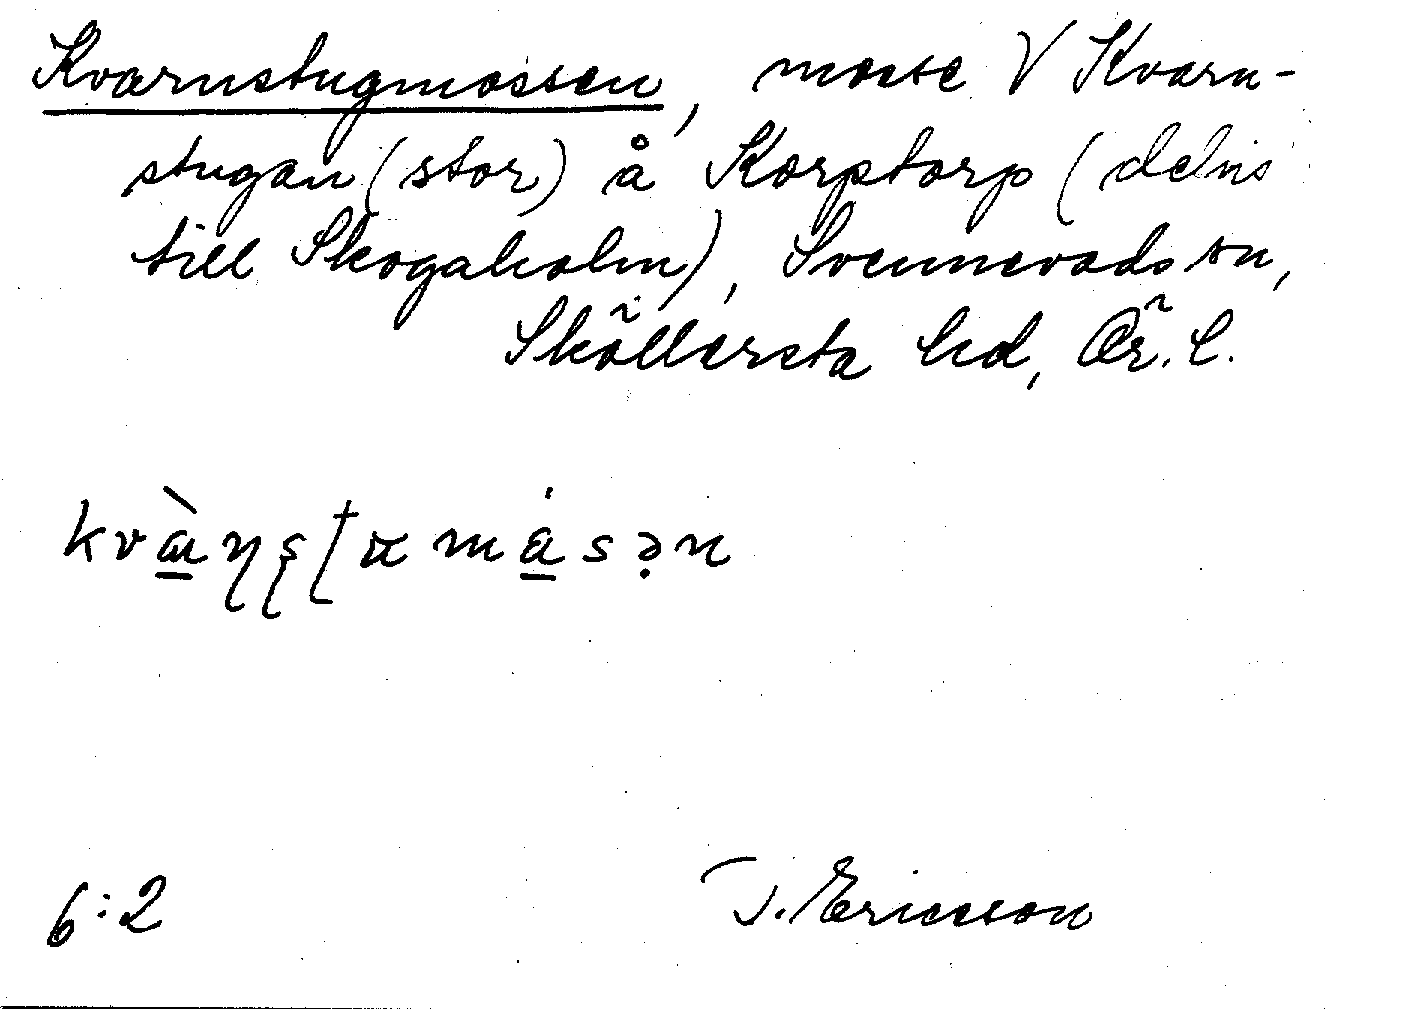 Kvarnstugmossen, mosse V Kvarn-
stugan (stor) å Korptorp (delvis
till Skogaholm), Svennevads sn,
Sköllersta hd, Ör. l.
6:2
J. Ericsson